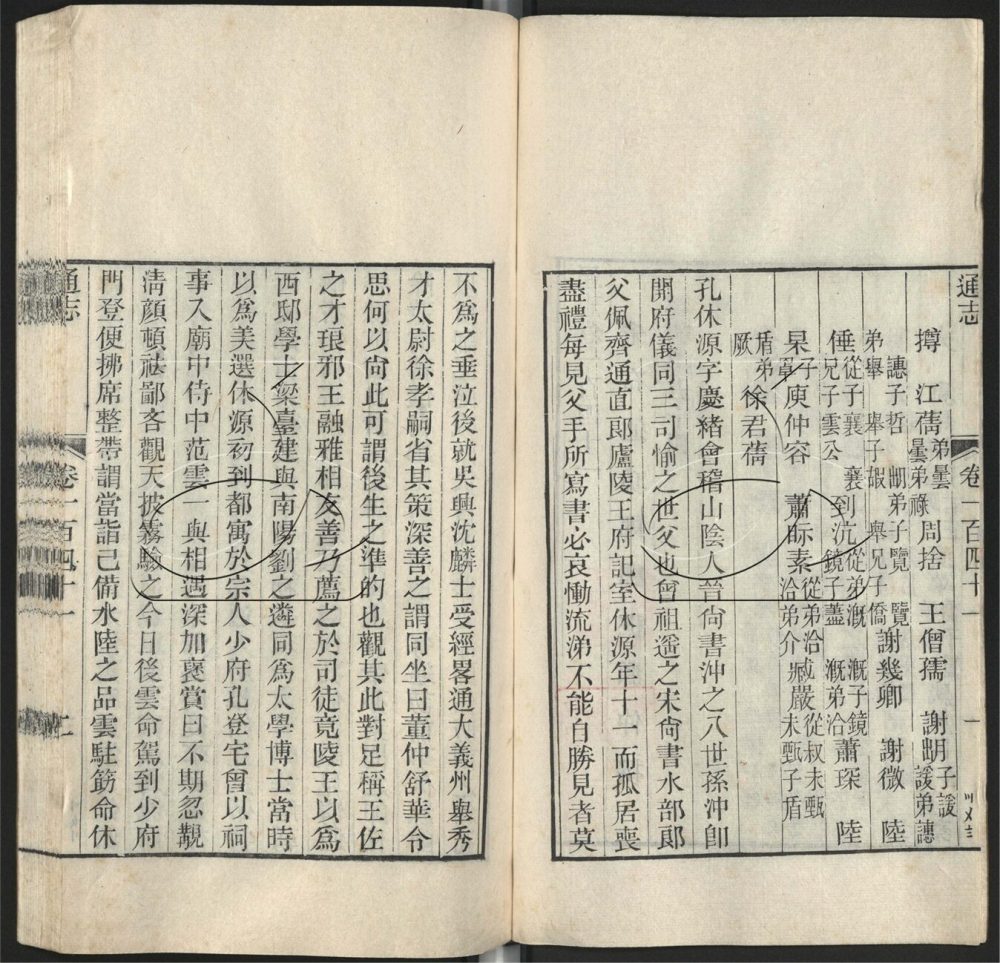 通志　卷一百四十一　一
撙　江蒨弟曇曇弟祿　周捨　王僧孺　謝朏子諼諼弟譓
譓子哲　朏弟子覽　覽弟舉　舉子嘏　舉兄子僑　謝幾卿　謝微　陸
倕從子襄　襄兄子雲公　到沆從弟溉　溉子鏡　鏡子藎　溉弟洽　蕭琛　陸
杲子罩　庾仲容　蕭眎素　洽從弟洽弟介　臧嚴從叔未甄　未甄子盾
盾弟厥　徐君蒨
孔休源字慶緒會稽山陰人晉尚書沖之八世孫沖即
開府儀同三司愉之世父也曾祖遙之宋尚書水部郎
父佩齊通直郎廬陵王府記室休源年十一而孤居喪
盡禮每見父手所寫書必哀慟流涕不能自勝見者莫
不為之垂泣後就吳興沈麟士受經畧通大義州舉秀
才太尉徐孝嗣省其策深善之謂同坐曰董仲舒華令
思何以尚此可謂後生之準的也觀其此對足稱王佐
之才琅邪王融雅相友善乃薦之於司徒竟陵王以為
西邸學士梁臺建與南陽劉之遴同為太學博士當時
以為美選休源初到都寓於宗人少府孔登宅曾以祠
事入廟中侍中范雲一與相遇深加褒賞曰不期忽覩
清顏頓袪鄙吝觀天披霧驗之今日後雲命駕到少府
門登便拂席整帶謂當詣己備水陸之品雲駐筯命休
通志　卷一百四十一　二